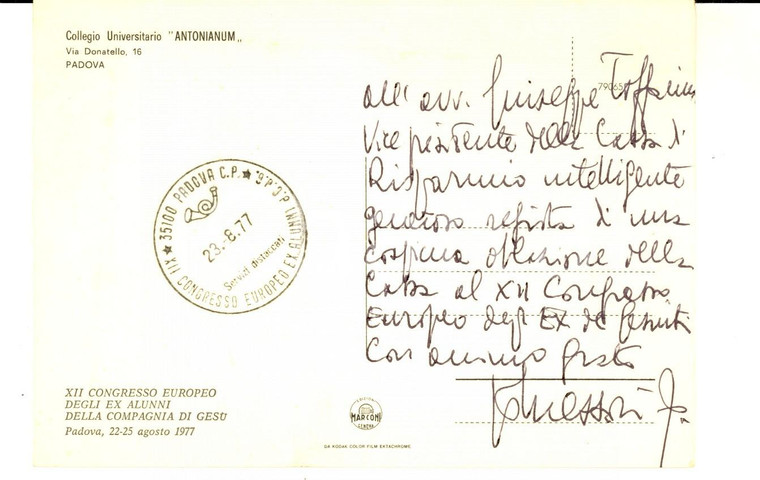 Collegio Universitario "ANTONIANUM„
Via Donatello, 16
PADOVA
35100 PADOVA C.P. ★
★ XII CONGRESSO EUROPEO EX ALUNNI P.C.P.
23.-8.77
Servizi distaccati
XII CONGRESSO EUROPEO
DEGLI EX ALUNNI
DELLA COMPAGNIA DI GESÙ
Padova, 22-25 agosto 1977
EDIZIONI
MARCONI
GENOVA
DA KODAK COLOR FILM EKTACHROME
all'avv. Giuseppe
Vice presidente della Cassa di
Risparmio intelligente
generoso regista di una
cospicua oblazione della
Cassa al XII Congresso
Europeo degli Ex dei Gesuiti
Con animo grato